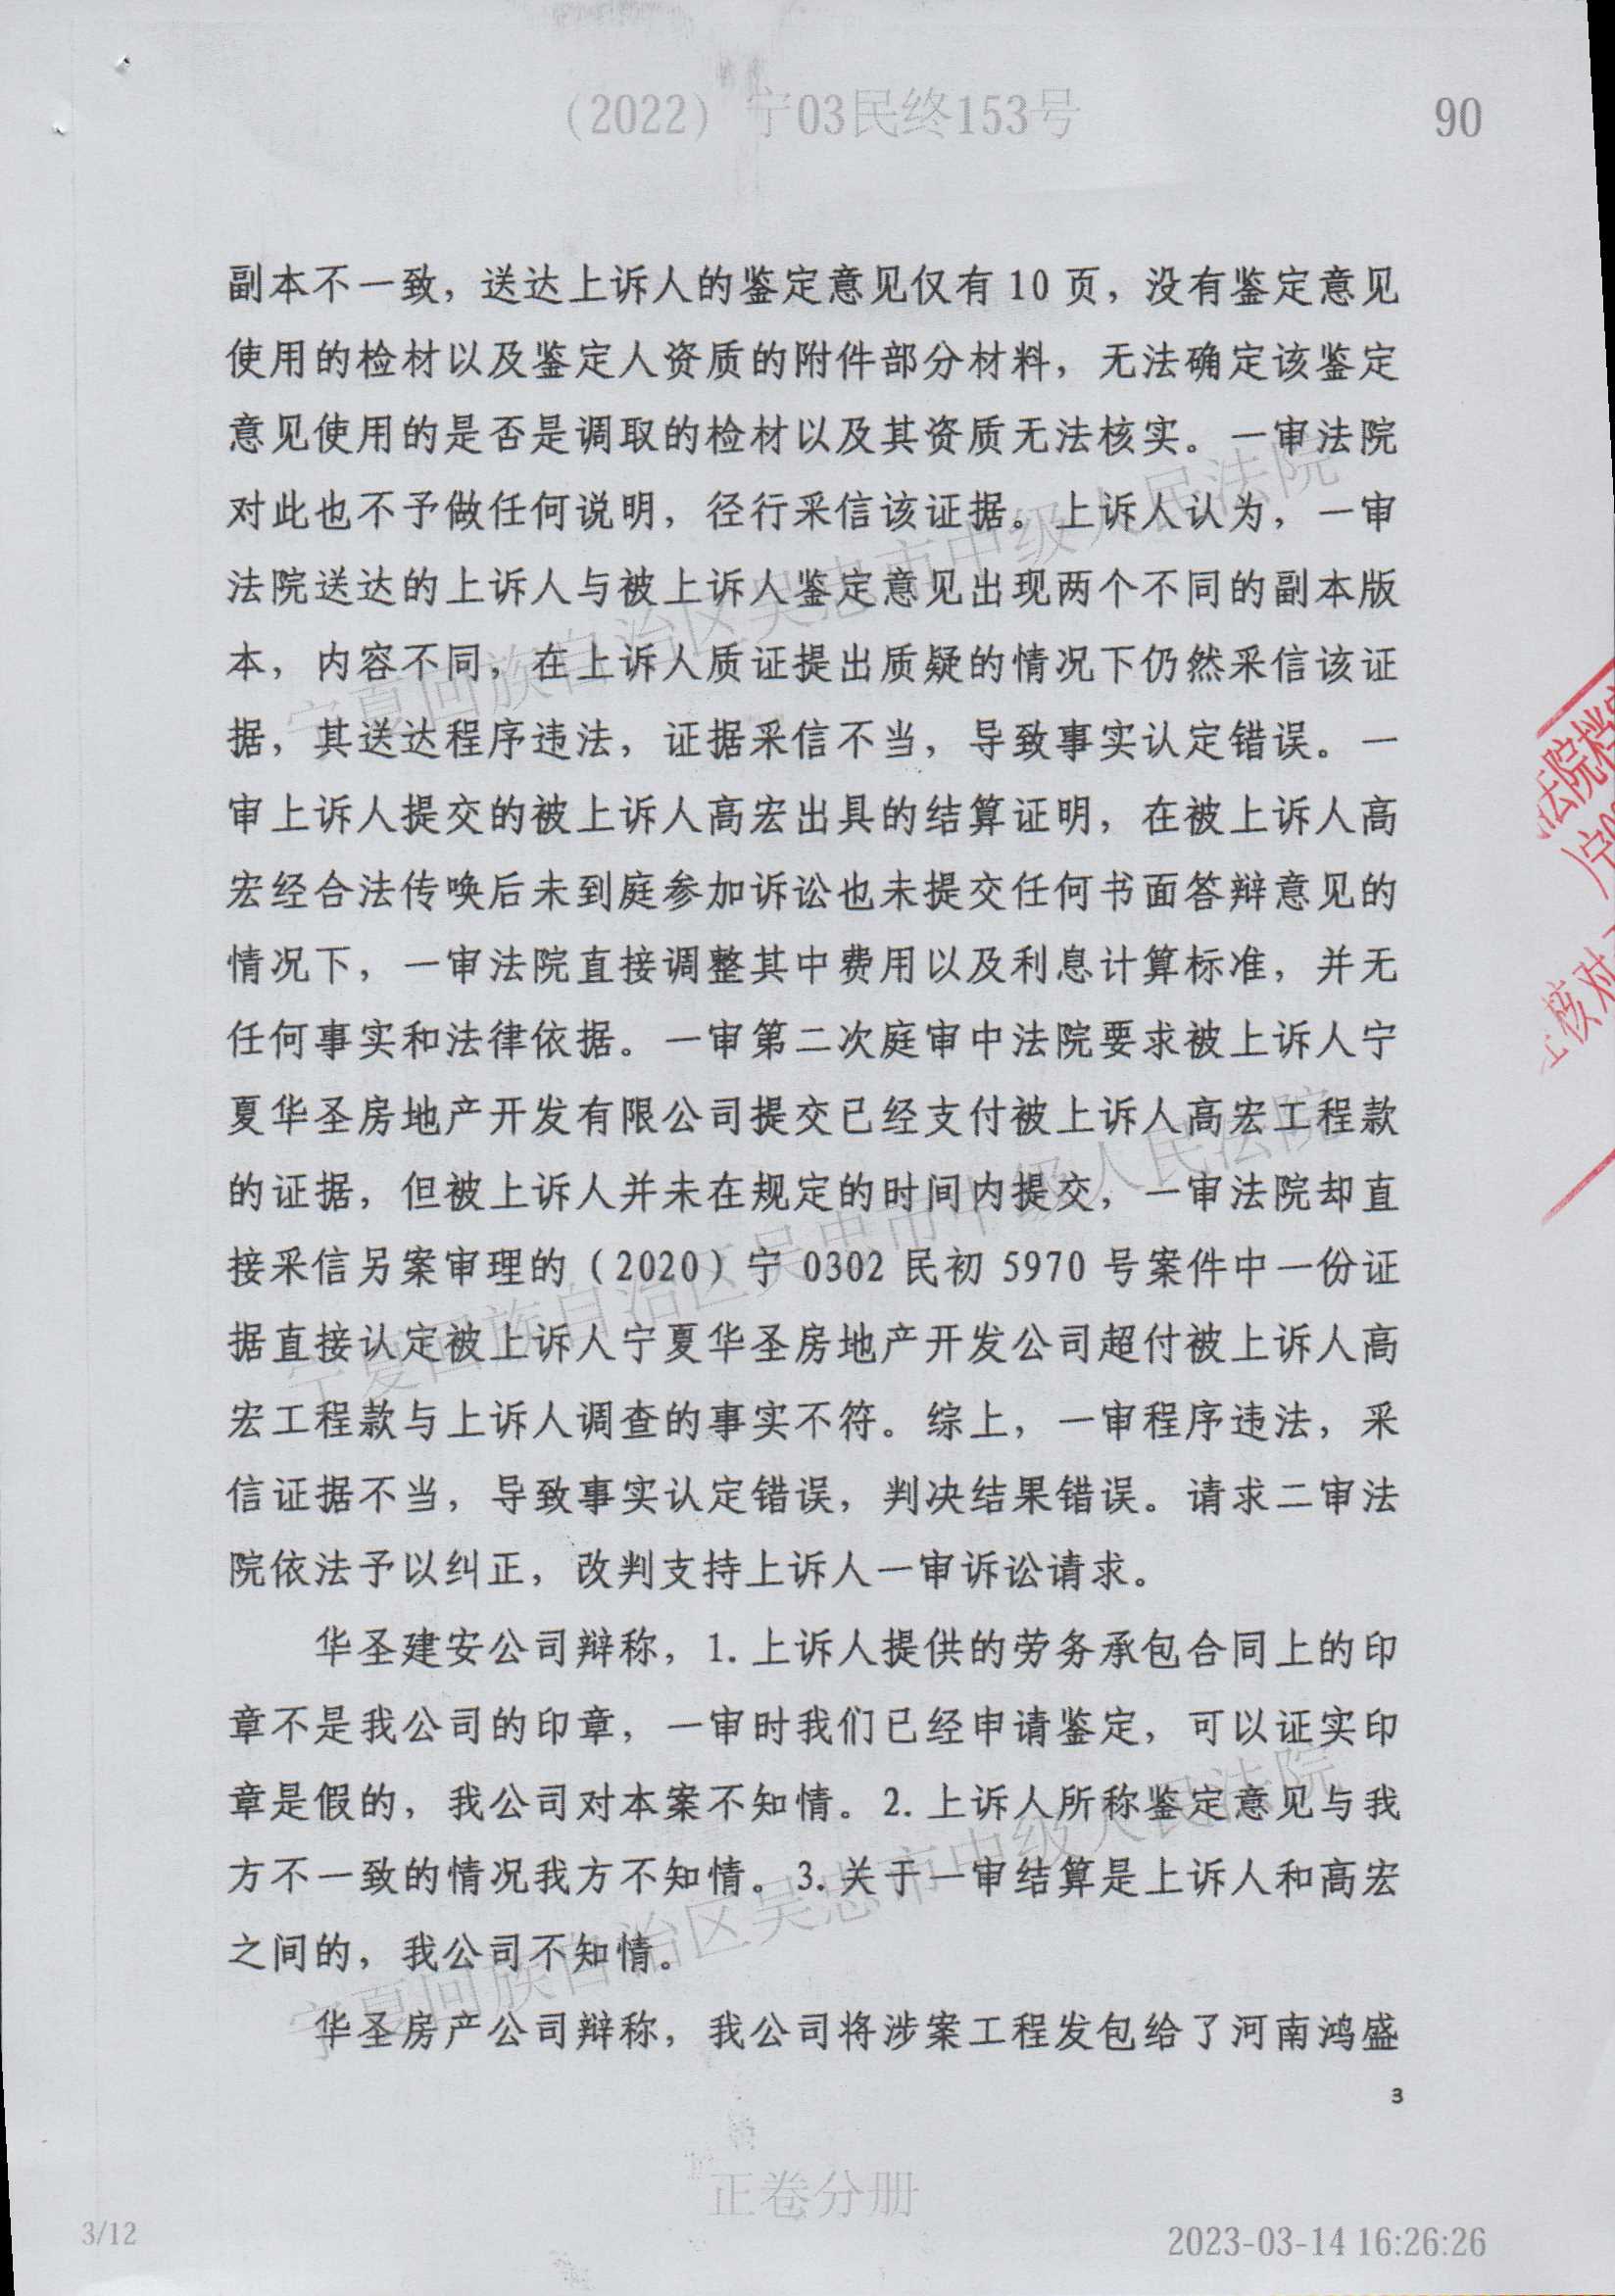 (2022) 宁03民终153号
90
副本不一致，送达上诉人的鉴定意见仅有10页，没有鉴定意见
使用的检材以及鉴定人资质的附件部分材料，无法确定该鉴定
意见使用的是否是调取的检材以及其资质无法核实。一审法院
对此也不予做任何说明，径行采信该证据。上诉人认为，一审
法院送达的上诉人与被上诉人鉴定意见出现两个不同的副本版
本，内容不同，在上诉人质证提出质疑的情况下仍然采信该证
据，其送达程序违法，证据采信不当，导致事实认定错误。一
审上诉人提交的被上诉人高宏出具的结算证明，在被上诉人高
宏经合法传唤后未到庭参加诉讼也未提交任何书面答辩意见的
情况下，一审法院直接调整其中费用以及利息计算标准，并无
任何事实和法律依据。一审第二次庭审中法院要求被上诉人宁
夏华圣房地产开发有限公司提交已经支付被上诉人高宏工程款
的证据，但被上诉人并未在规定的时间内提交，一审法院却直
接采信另案审理的（2020）宁0302民初5970号案件中一份证
据直接认定被上诉人宁夏华圣房地产开发公司超付被上诉人高
宏工程款与上诉人调查的事实不符。综上，一审程序违法，采
信证据不当，导致事实认定错误，判决结果错误。请求二审法
院依法予以纠正，改判支持上诉人一审诉讼请求。
华圣建安公司辩称，1.上诉人提供的劳务承包合同上的印
章不是我公司的印章，一审时我们已经申请鉴定，可以证实印
章是假的，我公司对本案不知情。2.上诉人所称鉴定意见与我
方不一致的情况我方不知情。3.关于一审结算是上诉人和高宏
之间的，我公司不知情。
华圣房产公司辩称，我公司将涉案工程发包给了河南鸿盛
3
正卷分册
3/12
2023-03-14 16:26:26
宁夏回族自治区吴忠市中级人民法院
宁夏回族自治区吴忠市中级人民法院
宁夏回族自治区吴忠市中级人民法院
法院档
核对